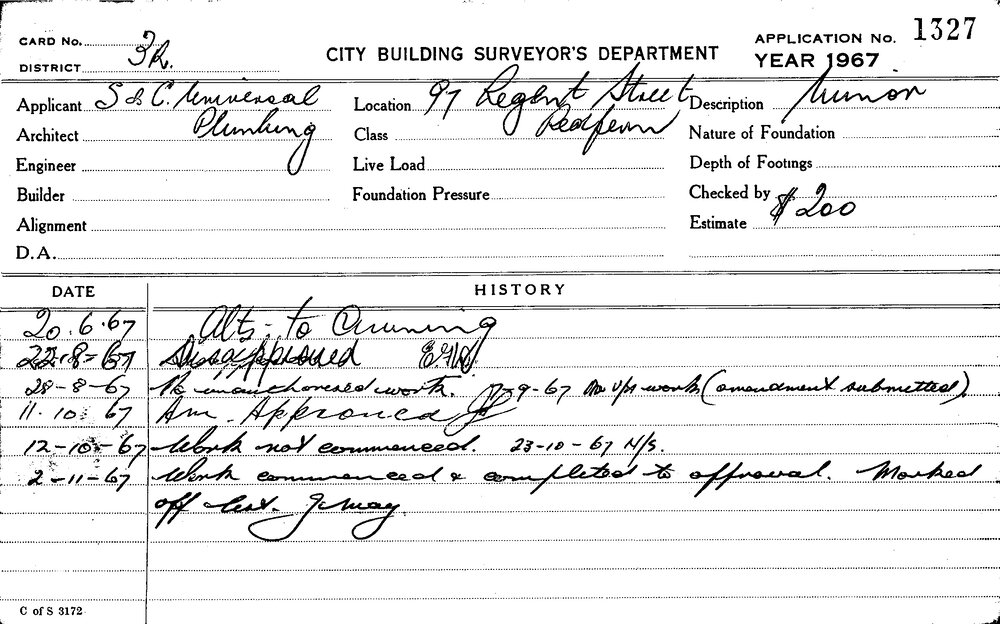 CARD No. 3R.
DISTRICT
CITY BUILDING SURVEYOR'S DEPARTMENT
APPLICATION No. 1327
YEAR 1967
Applicant S & C. Universal Plumbing
Location 97 Regent Street Redfern
Description Minor
Architect
Class
Nature of Foundation
Engineer
Live Load
Depth of Footings
Builder
Foundation Pressure
Checked by
Alignment
Estimate $200
D.A.
DATE
HISTORY
20.6.67 Alts. to Awning
22-8-67 Disapproved
28-8-67 No unauthoresed work. -9-67 No u/s work (amendment submitted).
11.10.67 Am. Approved
12-10-67 Work not commenced. 23-10-67 N/S.
2-11-67 Work commenced & completed to approval. Marked
off J. May.
C of S 3172